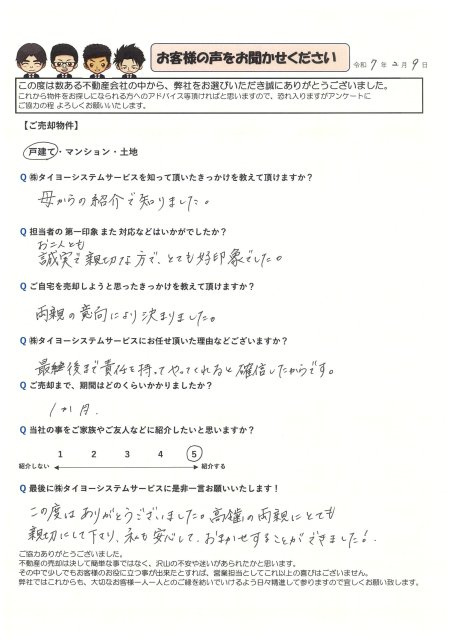 お客様の声をお聞かせください
令和 7 年 2 月 9 日
この度は数ある不動産会社の中から、弊社をお選びいただき誠にありがとうございました。
これから物件をお探しになられる方へのアドバイス等頂ければと思いますので、恐れ入りますがアンケートに
ご協力の程 よろしくお願いいたします。
【ご売却物件】
戸建て・マンション・土地
Q ㈱タイヨーシステムサービスを知って頂いたきっかけを教えて頂けますか？
母からの紹介で知りました。
Q 担当者の 第一印象 また 対応などはいかがでしたか？
お二人とも
誠実で親切な方で、とても好印象でした。
Q ご自宅を売却しようと思ったきっかけを教えて頂けますか？
両親の意向により決まりました。
Q ㈱タイヨーシステムサービスにお任せ頂いた理由などございますか？
最後まで責任を持ってやってくれると確信したからです。
Q ご売却まで、期間はどのくらいかかりましたか？
1か月.
Q 当社の事をご家族やご友人などに紹介したいと思いますか？
1 2 3 4 5
紹介しない 紹介する
Q 最後に㈱タイヨーシステムサービスに是非一言お願いいたします！
この度はありがとうございました。高齢の両親にとても
親切にして下さり、私も安心して、おまかせすることができました！
ご協力ありがとうございました。
不動産の売却は決して簡単な事ではなく、沢山の不安や迷いがあられたかと思います。
その中で少しでもお客様のお役に立つ事が出来たとすれば、営業担当としてこれ以上の喜びはございません。
弊社ではこれからも、大切なお客様一人一人とのご縁を紡いでいけるよう日々精進して参りますので宜しくお願い致します。